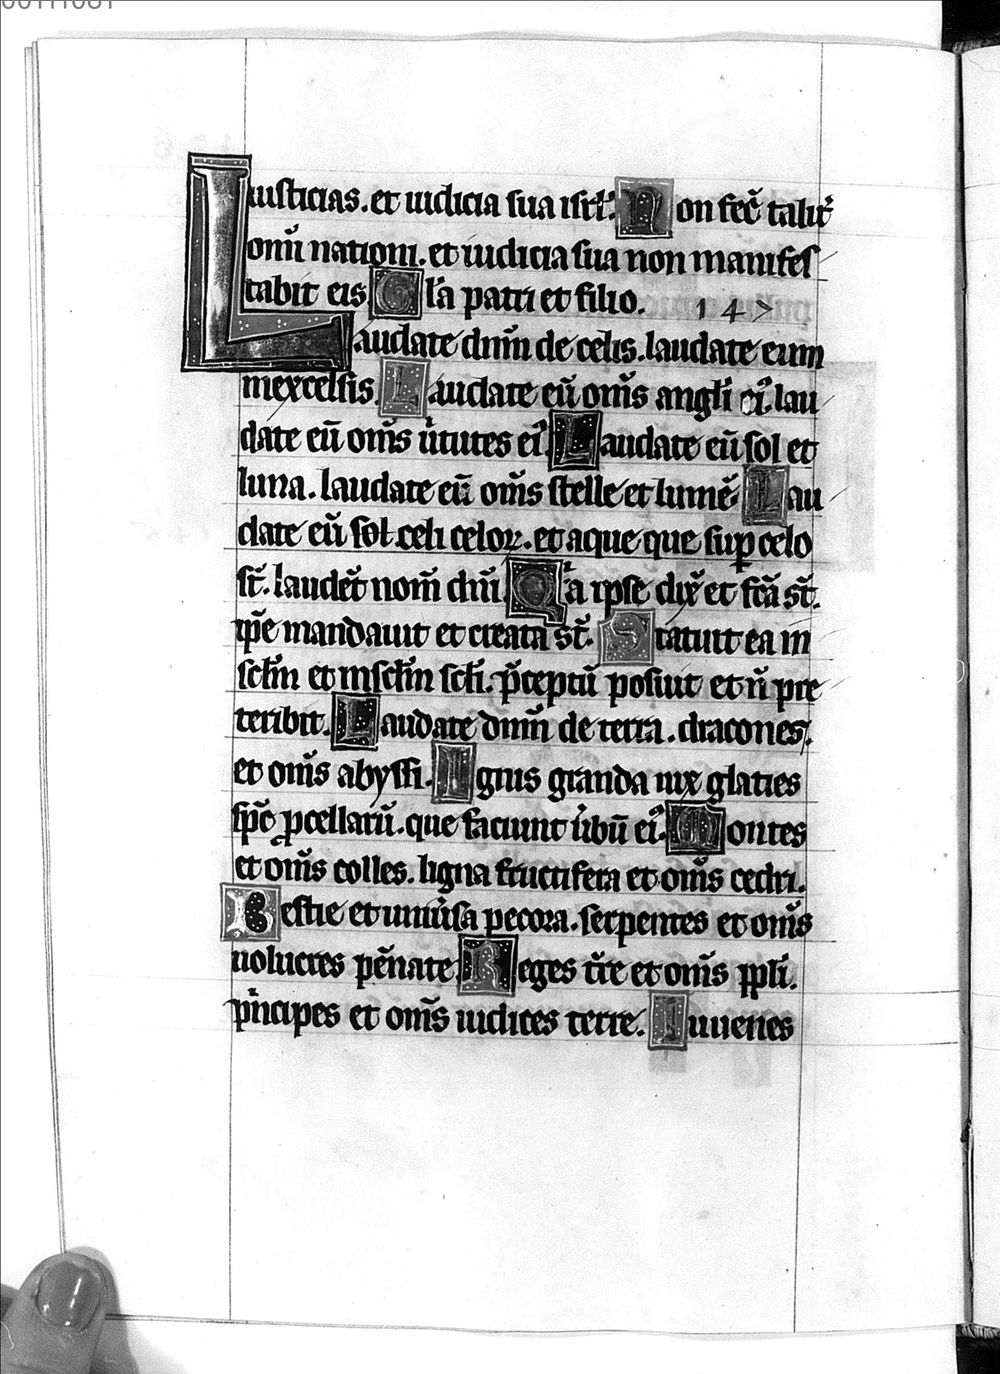 00111081
iusticias. et iudicia sua isrl'. Non fec̄ talit'
om̄i nationi. et iudicia sua non manifes
tabit eis Gl'a patri et filio. 147
Laudate dn̄m de celis. laudate eum
in excelsis. Laudate eū om̄s angl'i ei'. lau
date eū om̄s u'tutes ei'. Laudate eū sol et
luna. laudate eū om̄s stelle et lumē. Lau
date eū celi celoꝝ. et aque que sup̄ celo
st̄. laudēt nom̄ dn̄i. Q'a ipse dix̄ et fc̄a st̄.
ip̄e mandauit et creata st̄. Statuit ea in
scl'm et in scl'm scl'i. p̄ceptū posiuit et n̄ pre
teribit. Laudate dn̄m de terra. dracones.
et om̄s abyssi. Ignis grando nix glacies
sp̄c ꝓcellarū. que faciunt u'bū ei'. Montes
et om̄s colles. ligna fructifera et om̄s cedri.
Bestie et uniu'sa pecora. serpentes et om̄s
uolucres pēnate. Reges t're et om̄s ppl'i.
p'ncipes et om̄s iudices terre. Iuuenes